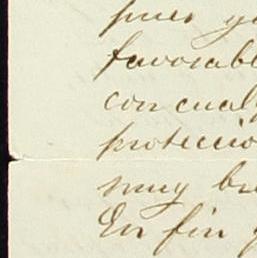 pues y
favorable
con cual
protección
muy br
En fin y